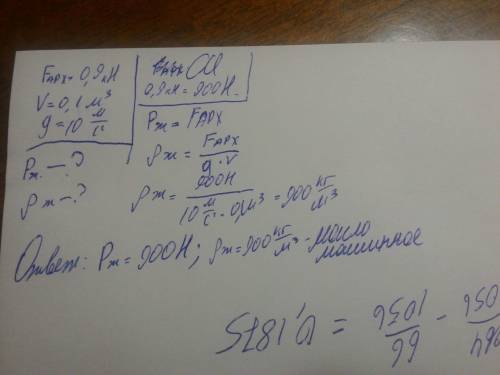 Fарх = 0,9кН
V = 0,1 м³
g = 10 м/с
Рж. — ?
ρж — ?
СИ
0,9кН = 900Н
Рж = Fарх
ρж = Fарх / g·V
ρж = 900Н / 10 м/с · 0,1м³ = 900 кг/м³
Ответ: Рж = 900Н; ρж = 900 кг/м³ - масло
машинное
66/1056 = 0,1875